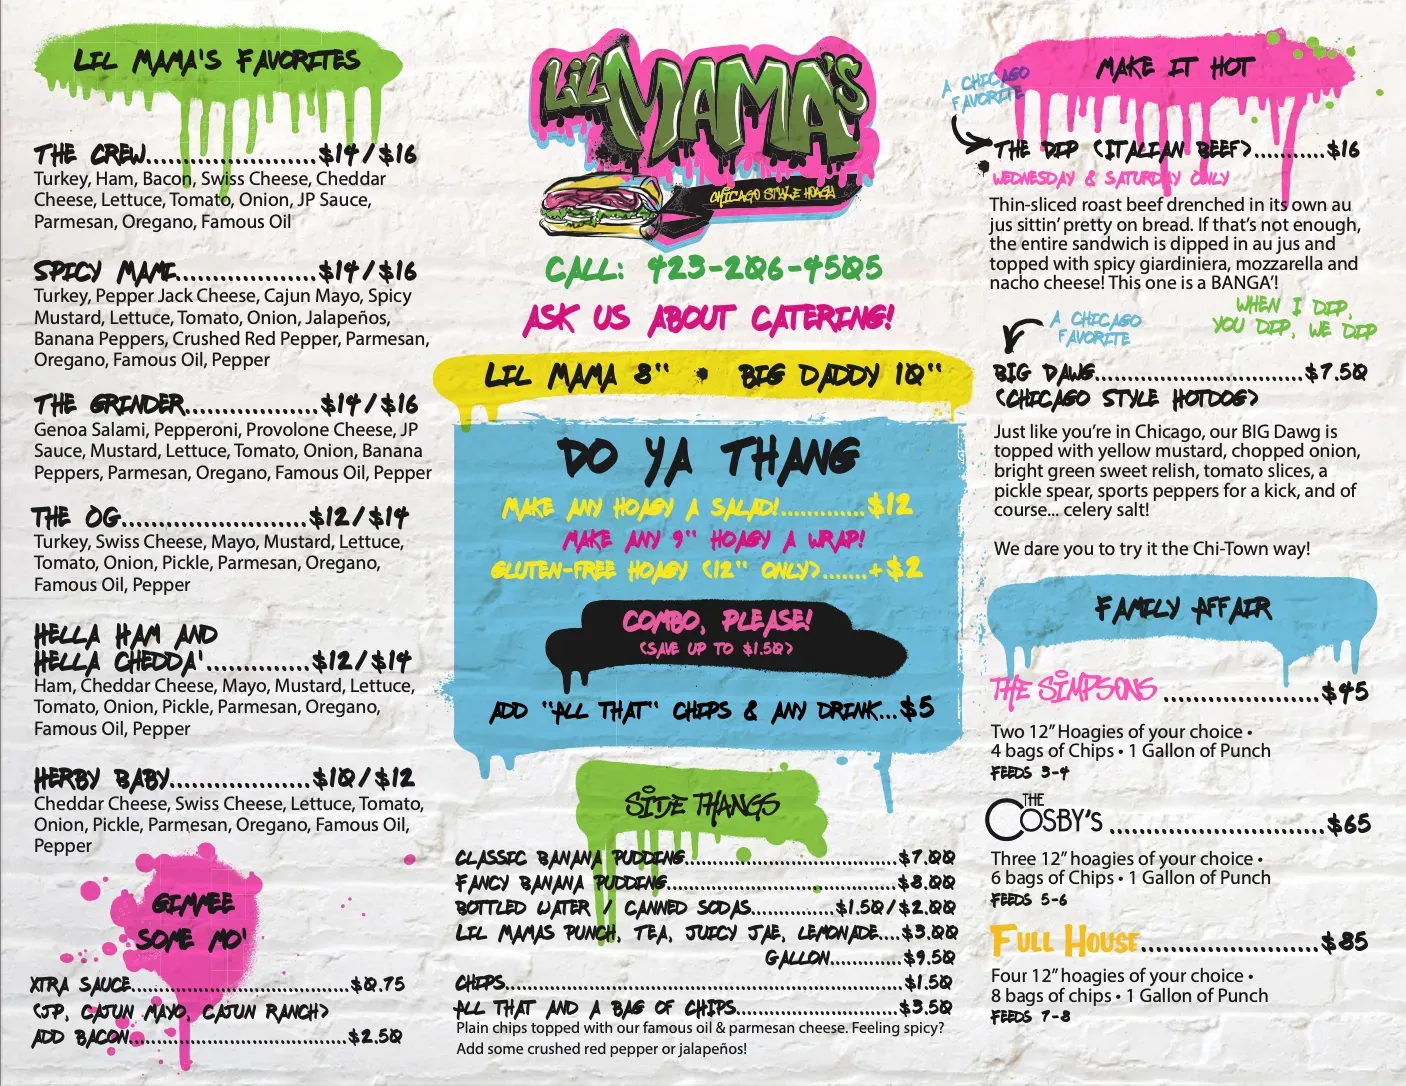 LIL MAMA'S FAVORITES
THE CREW......................$14/$16
Turkey, Ham, Bacon, Swiss Cheese, Cheddar
Cheese, Lettuce, Tomato, Onion, JP Sauce,
Parmesan, Oregano, Famous Oil
SPICY MAMI..................$14/$16
Turkey, Pepper Jack Cheese, Cajun Mayo, Spicy
Mustard, Lettuce, Tomato, Onion, Jalapeños,
Banana Peppers, Crushed Red Pepper, Parmesan,
Oregano, Famous Oil, Pepper
THE GRINDER.................$14/$16
Genoa Salami, Pepperoni, Provolone Cheese, JP
Sauce, Mustard, Lettuce, Tomato, Onion, Banana
Peppers, Parmesan, Oregano, Famous Oil, Pepper
THE OG........................$12/$14
Turkey, Swiss Cheese, Mayo, Mustard, Lettuce,
Tomato, Onion, Pickle, Parmesan, Oregano,
Famous Oil, Pepper
HELLA HAM AND
HELLA CHEDDA'.............$12/$14
Ham, Cheddar Cheese, Mayo, Mustard, Lettuce,
Tomato, Onion, Pickle, Parmesan, Oregano,
Famous Oil, Pepper
HERBY BABY...................$10/$12
Cheddar Cheese, Swiss Cheese, Lettuce, Tomato,
Onion, Pickle, Parmesan, Oregano, Famous Oil,
Pepper
GIMMEE
SOME MO'
XTRA SAUCE...............................$0.75
(JP, CAJUN MAYO, CAJUN RANCH)
ADD BACON...............................$2.50
LIL MAMA'S
CHICAGO STYLE HOAGY
CALL: 423-206-4505
ASK US ABOUT CATERING!
LIL MAMA 8" • BIG DADDY 10"
DO YA THANG
MAKE ANY HOAGY A SALAD!.............$12
MAKE ANY 9" HOAGY A WRAP!
GLUTEN-FREE HOAGY (12" ONLY).......+$2
COMBO, PLEASE!
(SAVE UP TO $1.50)
ADD "ALL THAT" CHIPS & ANY DRINK...$5
SIDE THANGS
CLASSIC BANANA PUDDING..............................$7.00
FANCY BANANA PUDDING.................................$8.00
BOTTLED WATER / CANNED SODAS............$1.50/$2.00
LIL MAMAS PUNCH, TEA, JUICY JAE, LEMONADE....$3.00
GALLON.............$9.50
CHIPS.........................................................$1.50
ALL THAT AND A BAG OF CHIPS.......................$3.50
Plain chips topped with our famous oil & parmesan cheese. Feeling spicy?
Add some crushed red pepper or jalapeños!
MAKE IT HOT
A CHICAGO
FAVORITE
THE DIP (ITALIAN BEEF)...........$16
WEDNESDAY & SATURDAY ONLY
Thin-sliced roast beef drenched in its own au
jus sittin' pretty on bread. If that's not enough,
the entire sandwich is dipped in au jus and
topped with spicy giardiniera, mozzarella and
nacho cheese! This one is a BANGA'!
WHEN I DIP,
YOU DIP, WE DIP
A CHICAGO
FAVORITE
BIG DAWG..............................$7.50
(CHICAGO STYLE HOTDOG)
Just like you're in Chicago, our BIG Dawg is
topped with yellow mustard, chopped onion,
bright green sweet relish, tomato slices, a
pickle spear, sports peppers for a kick, and of
course... celery salt!
We dare you to try it the Chi-Town way!
FAMILY AFFAIR
THE SIMPSONS ......................$45
Two 12" Hoagies of your choice •
4 bags of Chips • 1 Gallon of Punch
FEEDS 3-4
THE COSBY'S ..............................$65
Three 12" hoagies of your choice •
6 bags of Chips • 1 Gallon of Punch
FEEDS 5-6
FULL HOUSE.........................$85
Four 12" hoagies of your choice •
8 bags of chips • 1 Gallon of Punch
FEEDS 7-8